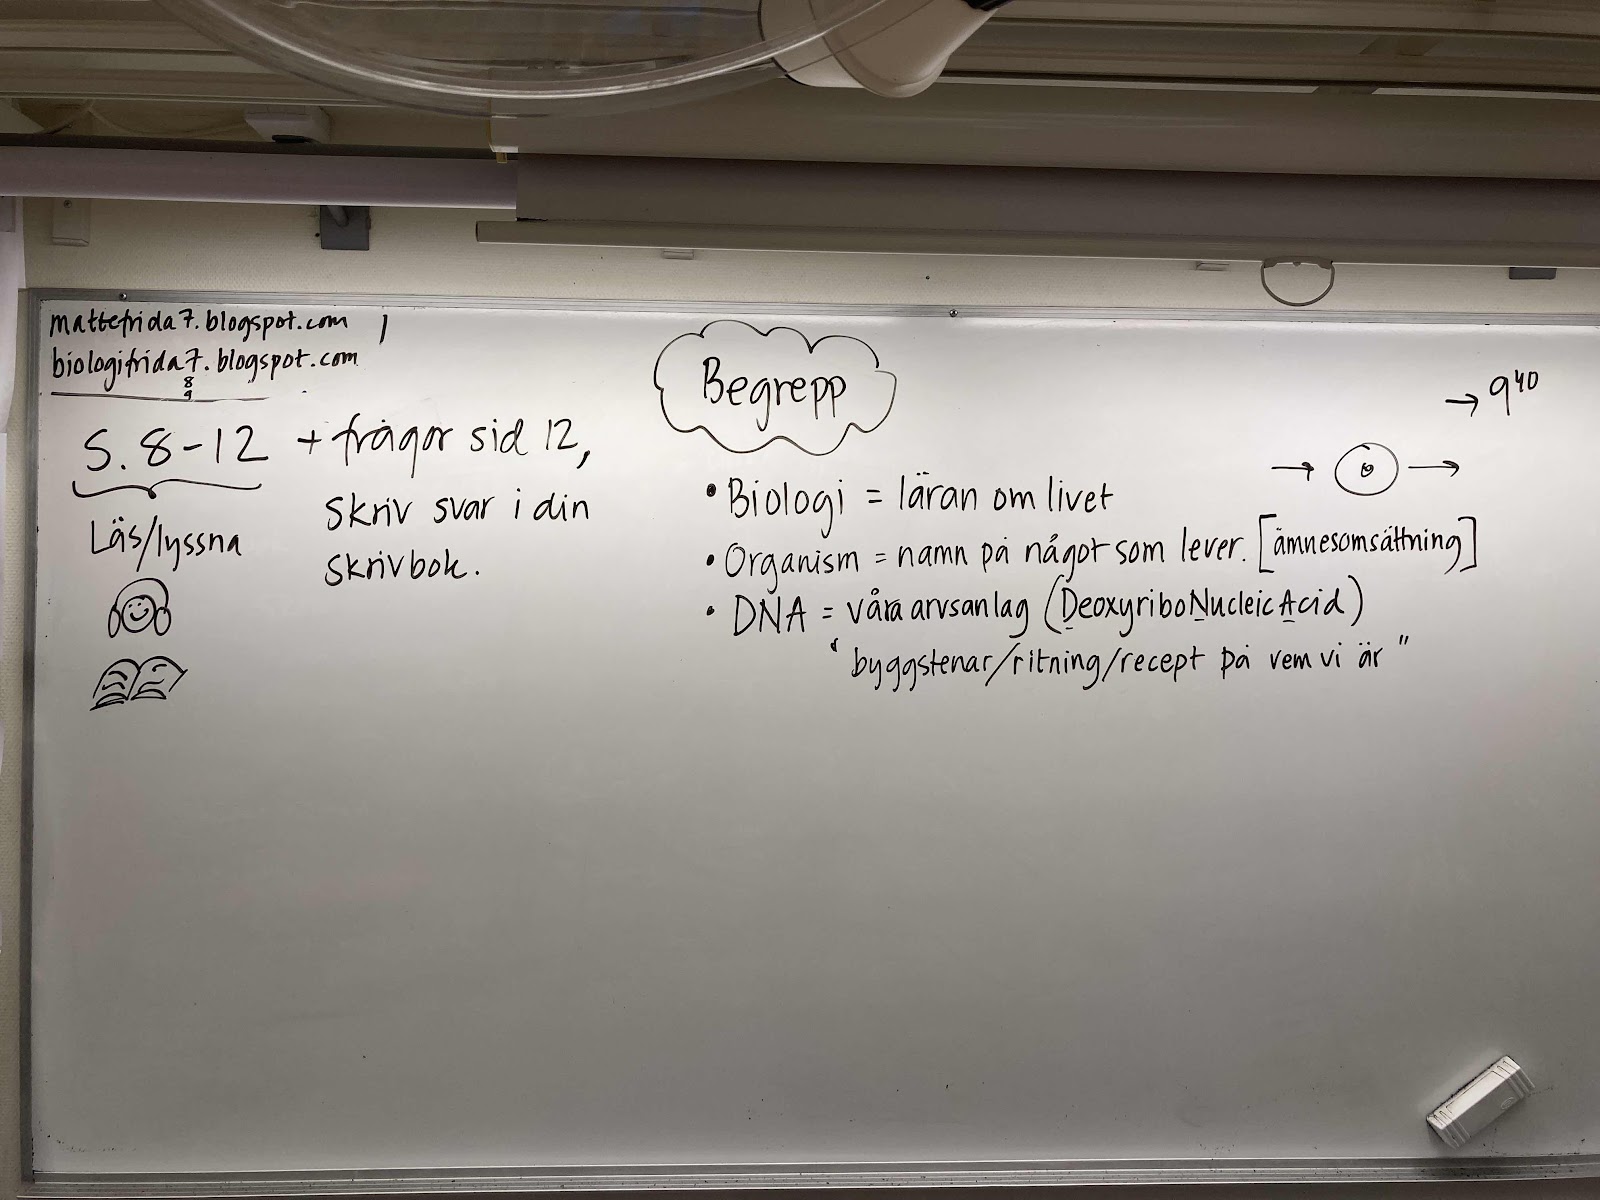 mattefrida7.blogspot.com
biologifrida7.blogspot.com
8
9
S. 8-12 + frågor sid 12,
skriv svar i din
skrivbok.
Läs/lyssna
Begrepp
→ 9⁴⁰
• Biologi = läran om livet
• Organism = namn på något som lever. [ämnesomsättning]
• DNA = våra arvsanlag (DeoxyriboNucleicAcid)
"byggstenar/ritning/recept på vem vi är"